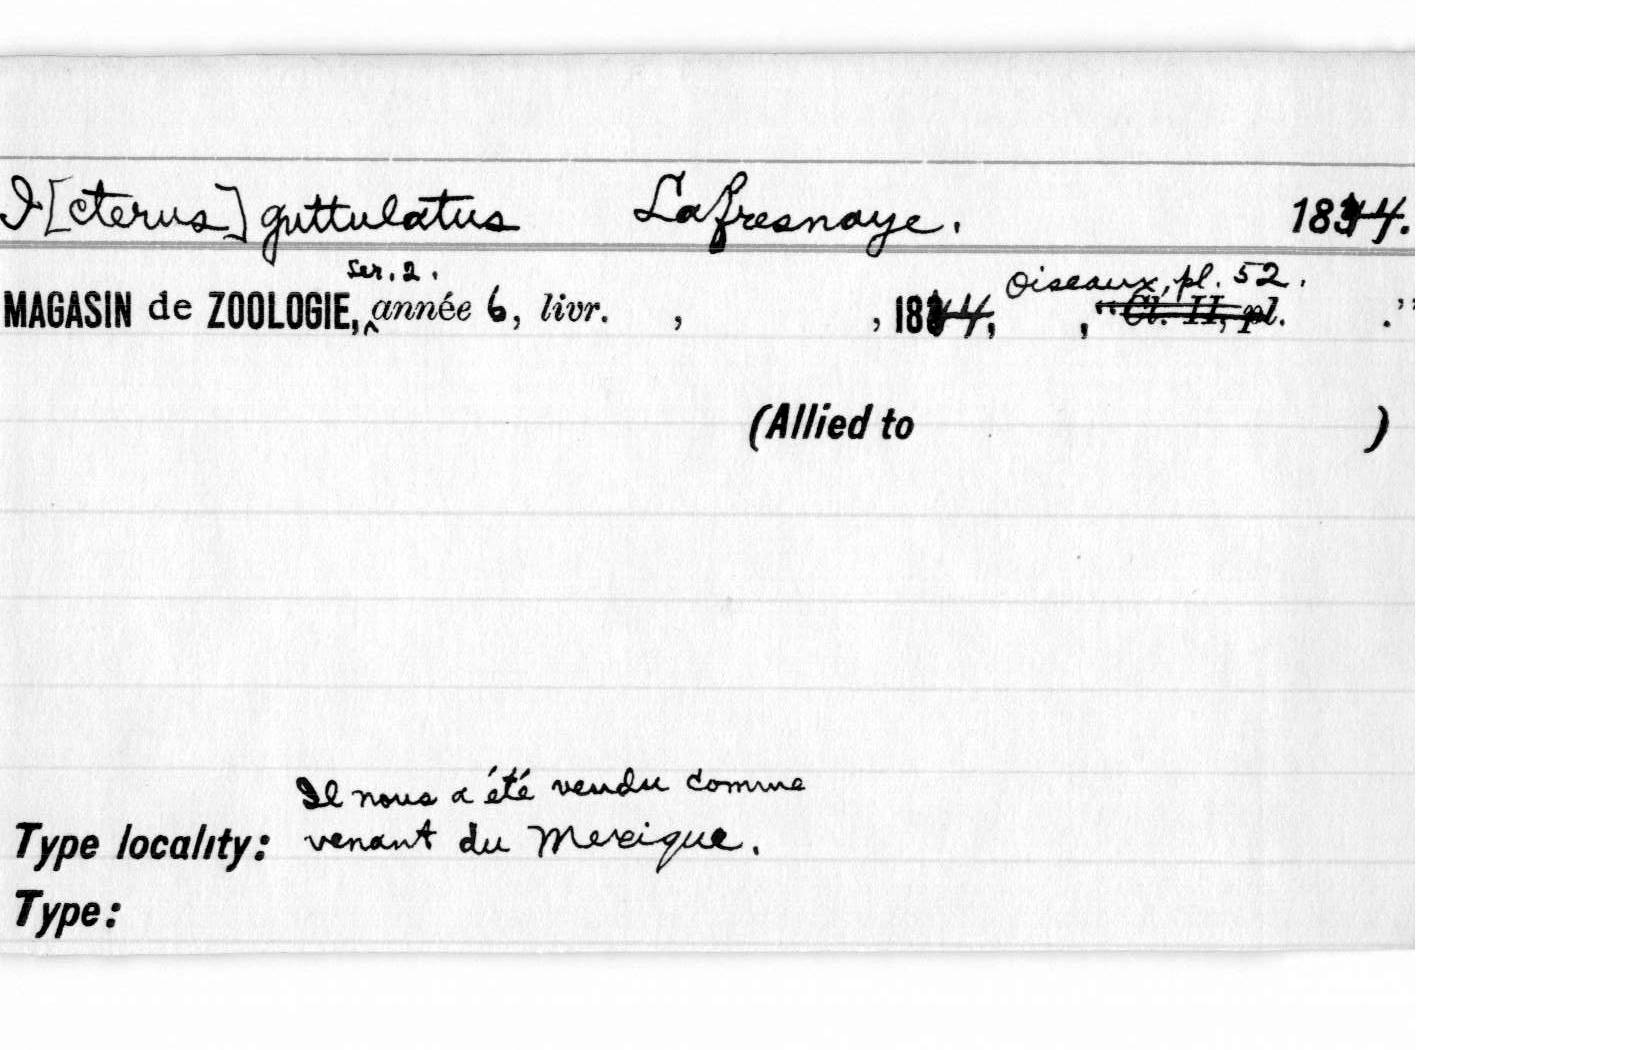 I[cterus] guttulatus Lafresnaye. 1844.
Ser. 2. Oiseaux, pl. 52.
MAGASIN de ZOOLOGIE, année 6, livr. , , 1844, , "Cl. II, pl. ."
(Allied to )
Il nous a été vendu comme
Type locality: venant du Mexique.
Type: